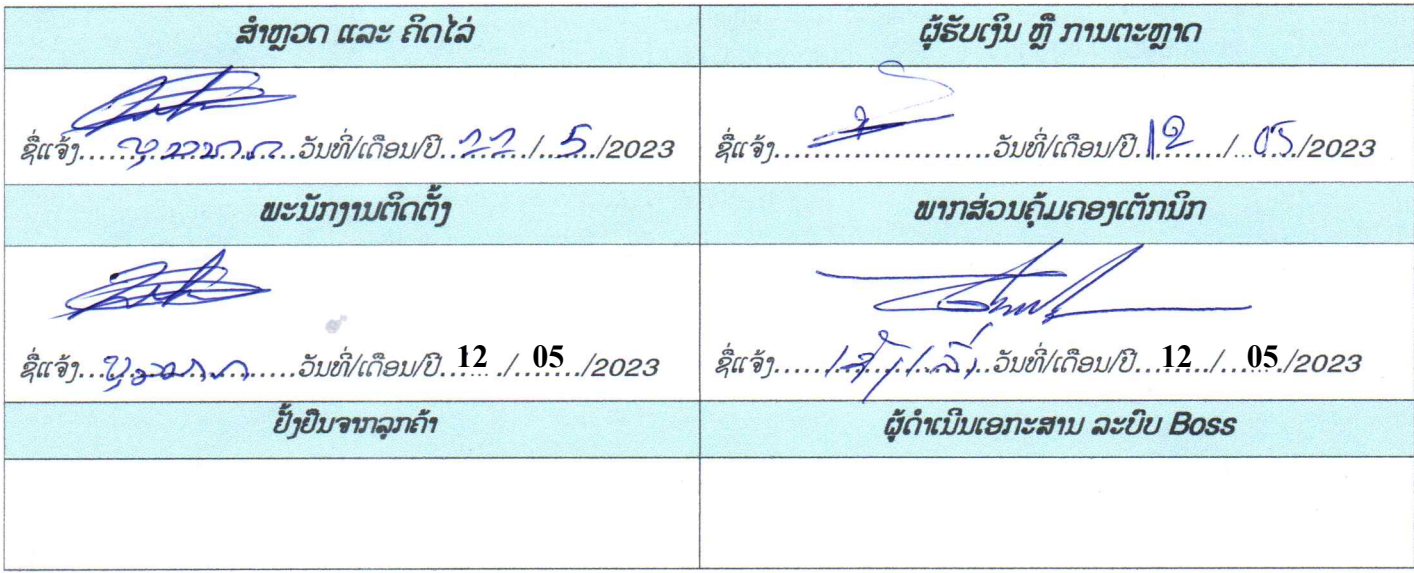 ສຳຫຼວດ ແລະ ຄິດໄລ່
ຜູ້ຮັບເງິນ ຫຼື ການຕະຫຼາດ
ຊື່ແຈ້ງ......................ວັນທີ່/ເດືອນ/ປີ........./...5./2023
ຊື່ແຈ້ງ......................ວັນທີ່/ເດືອນ/ປີ.12......../...05./2023
ພະນັກງານຕິດຕັ້ງ
ພາກສ່ວນຄຸ້ມຄອງເຕັກນິກ
ຊື່ແຈ້ງ......................ວັນທີ່/ເດືອນ/ປີ..12../..05../2023
ຊື່ແຈ້ງ......................ວັນທີ່/ເດືອນ/ປີ..12../..05../2023
ຢັ້ງຢືນຈາກລູກຄ້າ
ຜູ້ດຳເນີນເອກະສານ ລະບົບ Boss